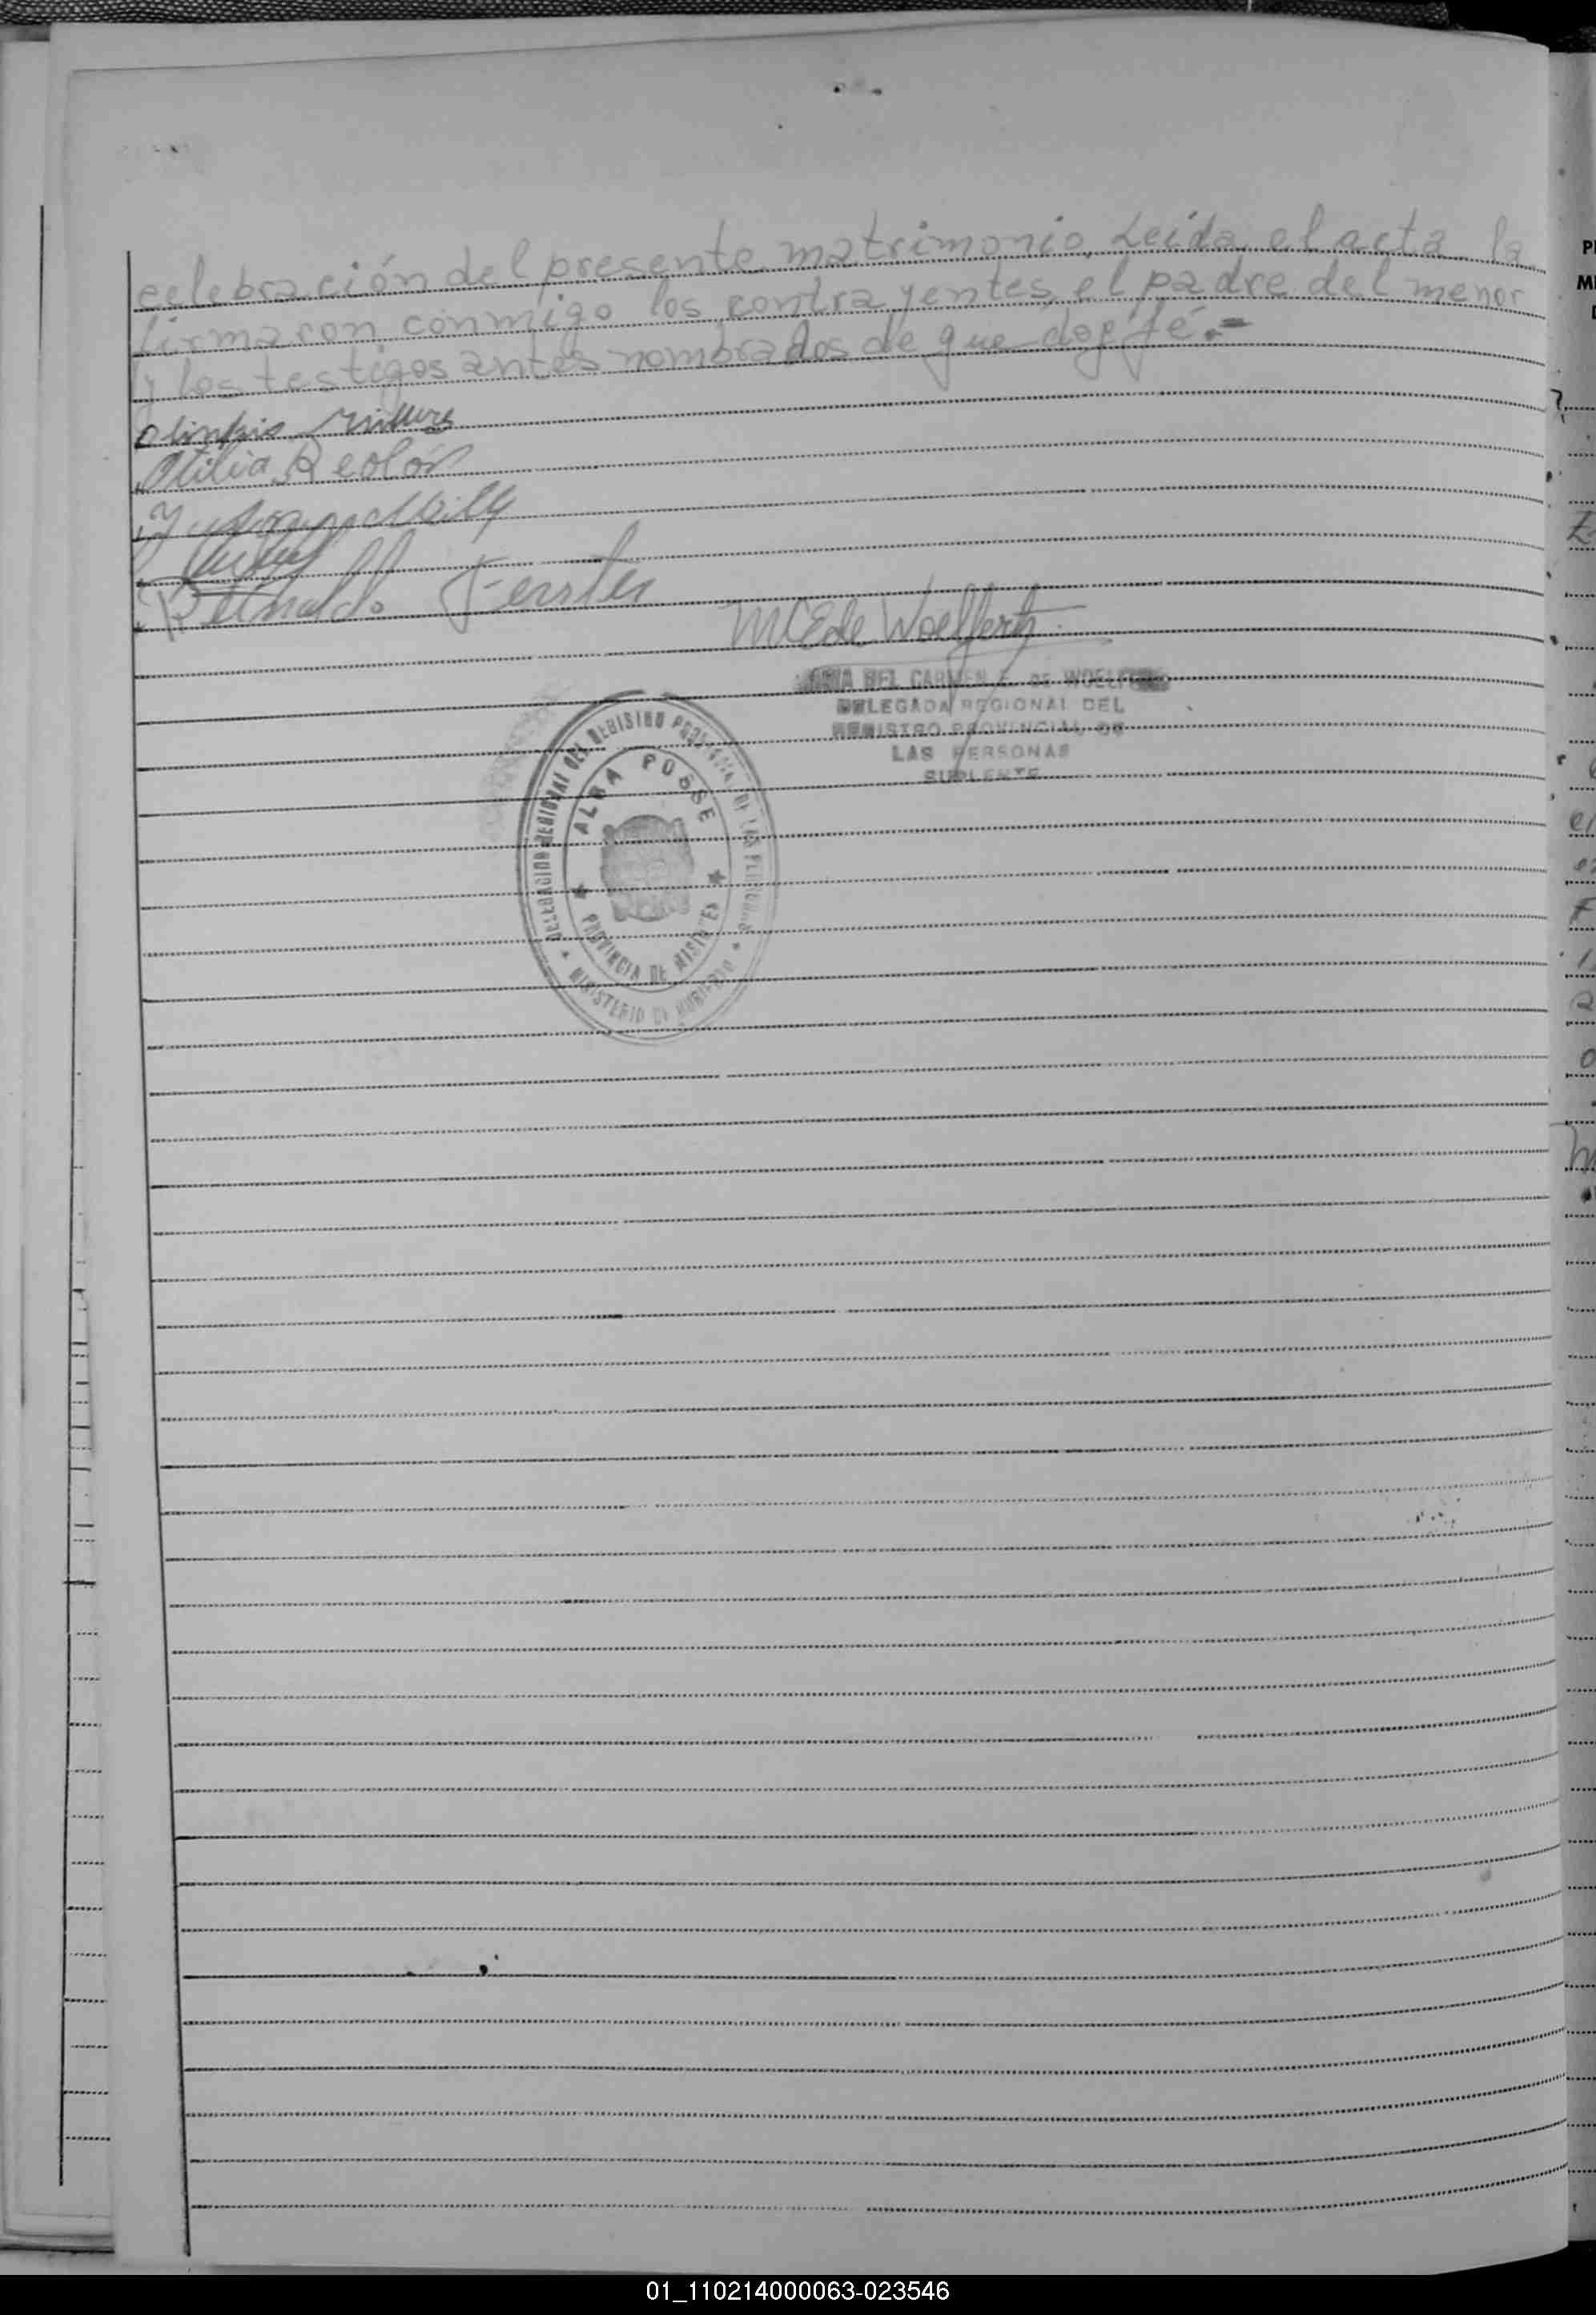 celebración del presente matrimonio, Leída el acta la
firmaron conmigo los contrayentes, el padre del menor
y los testigos antes nombrados de que doy fé.=
Otilia Reolón
Reinaldo Ferster
MCE de Woelfert
MARIA DEL CARMEN E. DE WOELFERT
DELEGADA REGIONAL DEL
REGISTRO PROVINCIAL DE
LAS PERSONAS
SUPLENTE
DELEGACION REGIONAL DEL REGISTRO PROVINCIAL DE LAS PERSONAS
ALBA POSSE
PROVINCIA DE MISIONES
MINISTERIO DE GOBIERNO
01_110214000063-023546